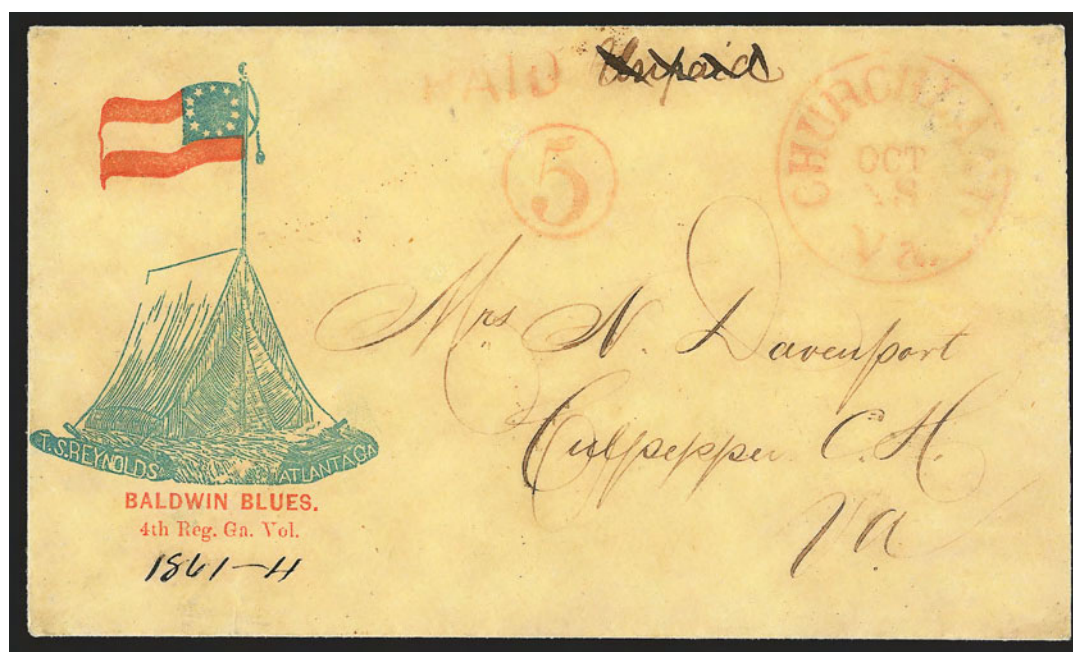 PAID Unpaid
5
OCT
Va.
Mrs N. Davenport
Culpepper C. H.
Va
T. S. REYNOLDS ATLANTA GA
BALDWIN BLUES.
4th Reg. Ga. Vol.
1861-4